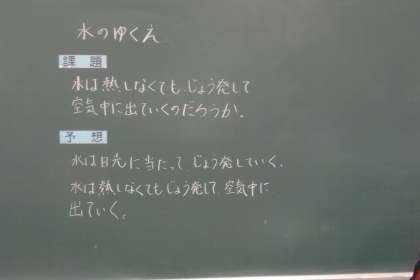 水のゆくえ
課題
水は熱しなくても、じょう発して
空気中に出ていくのだろうか。
予想
水は日光に当たって、じょう発していく。
水は熱しなくてもじょう発して、空気中に
出ていく。